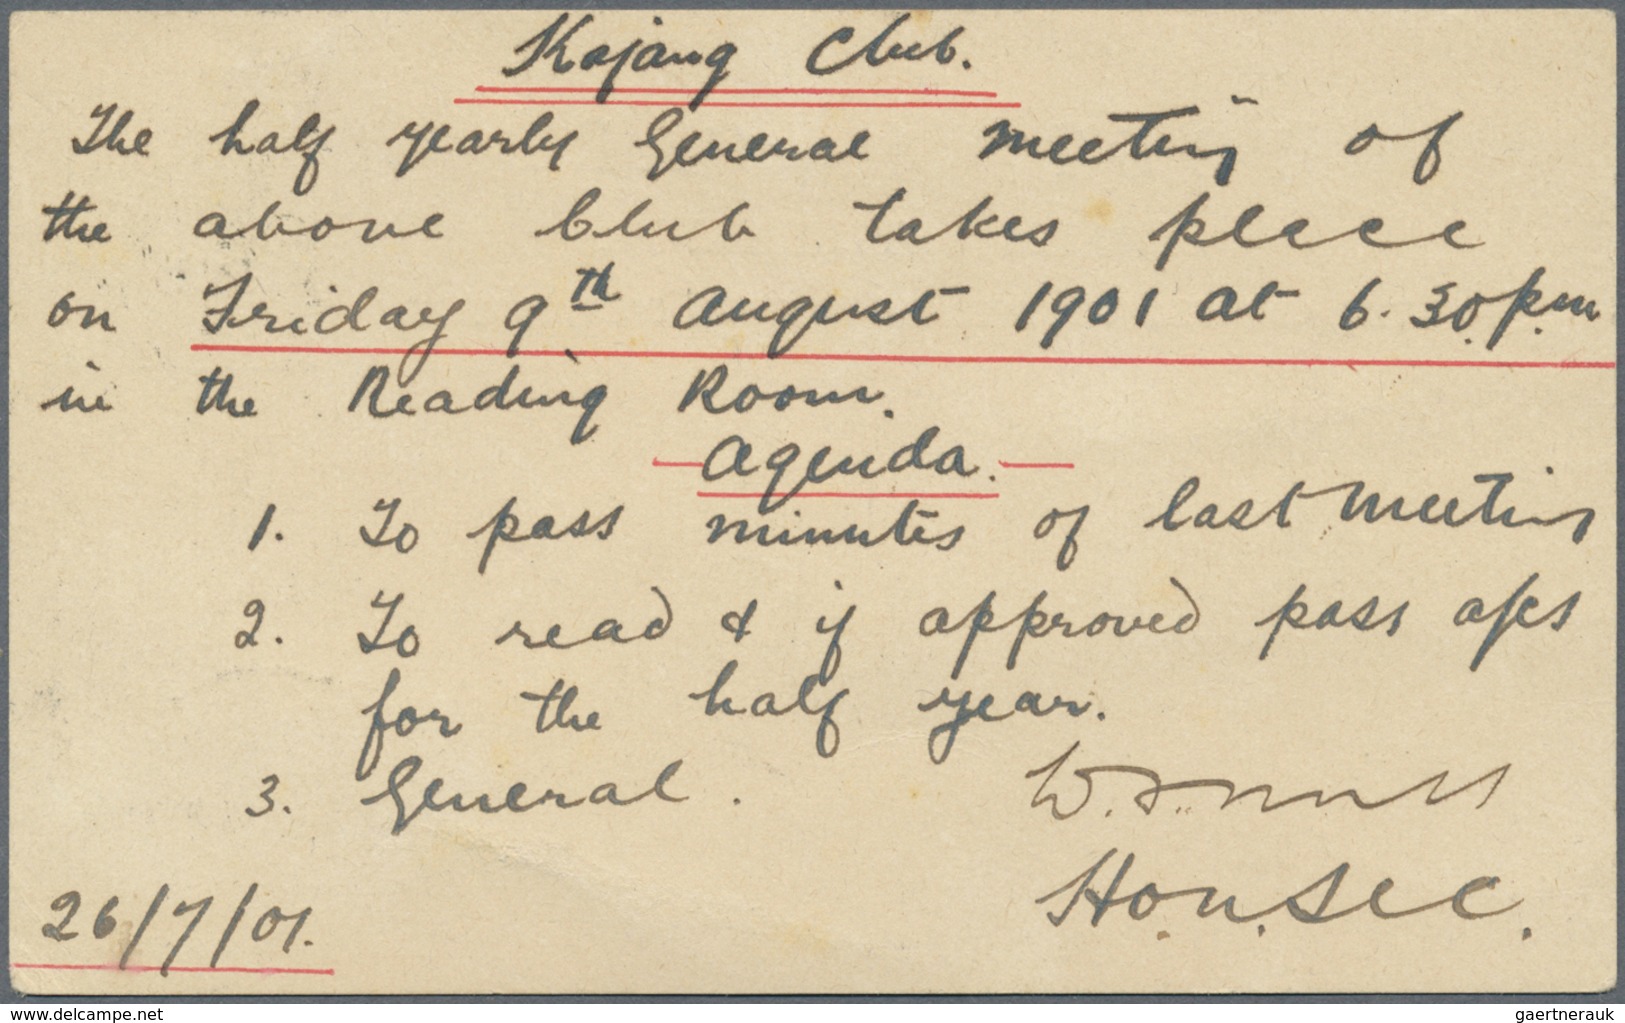 Kajang Club.
The half yearly General meeting of
the above Club takes place
on Friday 9th August 1901 at 6.30 p.m
in the Reading Room.
Agenda.
1. To pass minutes of last meeting
2. To read & if approved pass a/cs
for the half year.
3. General.
W.
Hon. Sec.
26/7/01.
delcampe.net
gaertnerauk